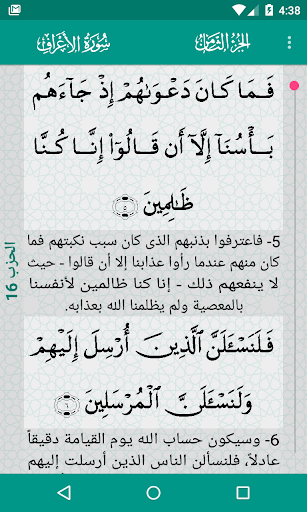 4:38
سُورَةُ الأَعْرَافِ
الجُزْءُ الثَّامِنُ
فَمَا كَانَ دَعْوَىٰهُمْ إِذْ جَآءَهُم
بَأْسُنَآ إِلَّآ أَن قَالُوٓا۟ إِنَّا كُنَّا
ظَٰلِمِينَ ٥
5- فاعترفوا بذنبهم الذى كان سبب نكبتهم فما
كان منهم عندما رأوا عذابنا إلا أن قالوا - حيث لا
ينفعهم ذلك - إنا كنا ظالمين لأنفسنا
بالمعصية ولم يظلمنا الله بعذابه.
الحزب 16
فَلَنَسْـَٔلَنَّ ٱلَّذِينَ أُرْسِلَ إِلَيْهِمْ
وَلَنَسْـَٔلَنَّ ٱلْمُرْسَلِينَ ٦
6- وسيكون حساب الله يوم القيامة دقيقاً
عادلاً، فلنسألن الناس الذين أرسلت إليهم